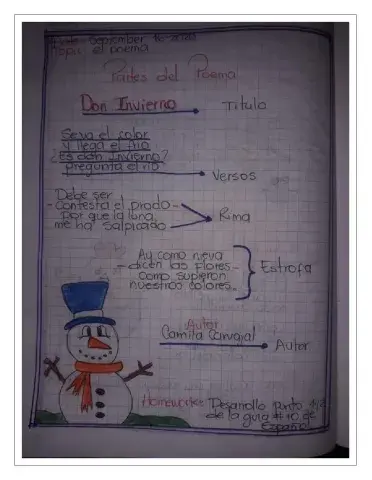 Date: September 16-2020
Topic: el poema
Partes del Poema
Don Invierno
Titulo
Se va el color
y llega el frio
¿Es don Invierno?
Pregunta el rio
Versos
Debe ser
- Contesta el prado -
por que la luna
me ha salpicado
Rima
Ay como nieva
- dicen las flores -
Como supieron
nuestros colores
Estrofa
Autor
Camila Carvajal
Autor
Homework: Desarrollo punto #2
de la guia #10 de
Español